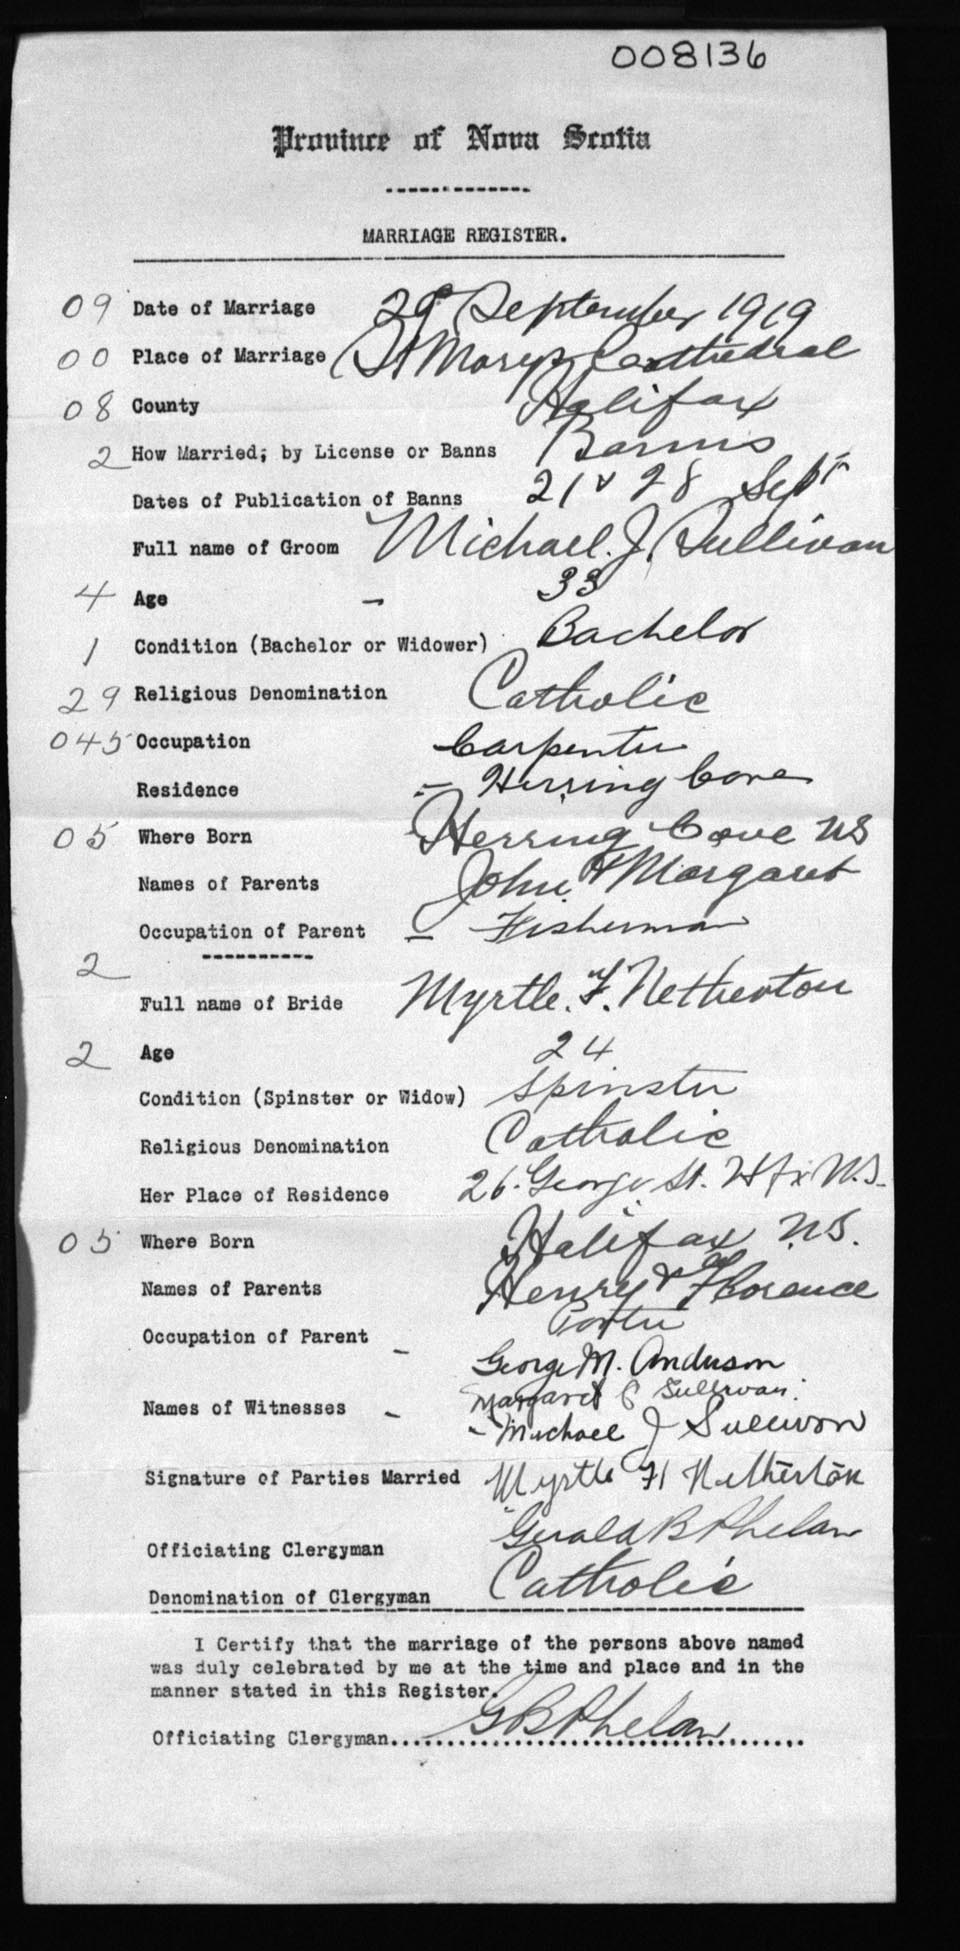 008136
Province of Nova Scotia
MARRIAGE REGISTER.
09 Date of Marriage 29 September 1919
00 Place of Marriage St Mary's Cathedral
08 County Halifax
2 How Married; by License or Banns Banns
Dates of Publication of Banns 21 & 28 Sept
Full name of Groom Michael. J. Sullivan
4 Age - 33
1 Condition (Bachelor or Widower) Bachelor
29 Religious Denomination Catholic
045 Occupation Carpenter
Residence - Herring Cove
05 Where Born Herring Cove NS
Names of Parents John & Margaret
Occupation of Parent - Fisherman
2
Full name of Bride Myrtle. F. Netherton
2 Age 24
Condition (Spinster or Widow) Spinster
Religious Denomination Catholic
Her Place of Residence 26. George St. Hfx N.S.
05 Where Born Halifax N.S.
Names of Parents Henry & Florence
Occupation of Parent - Porter
George M. Anderson
Names of Witnesses - Margaret Sullivan
- Michael J Sullivan
Signature of Parties Married Myrtle Netherton
Officiating Clergyman Gerald B Phelan
Denomination of Clergyman Catholic
I Certify that the marriage of the persons above named
was duly celebrated by me at the time and place and in the
manner stated in this Register.
Officiating Clergyman.... G B Phelan